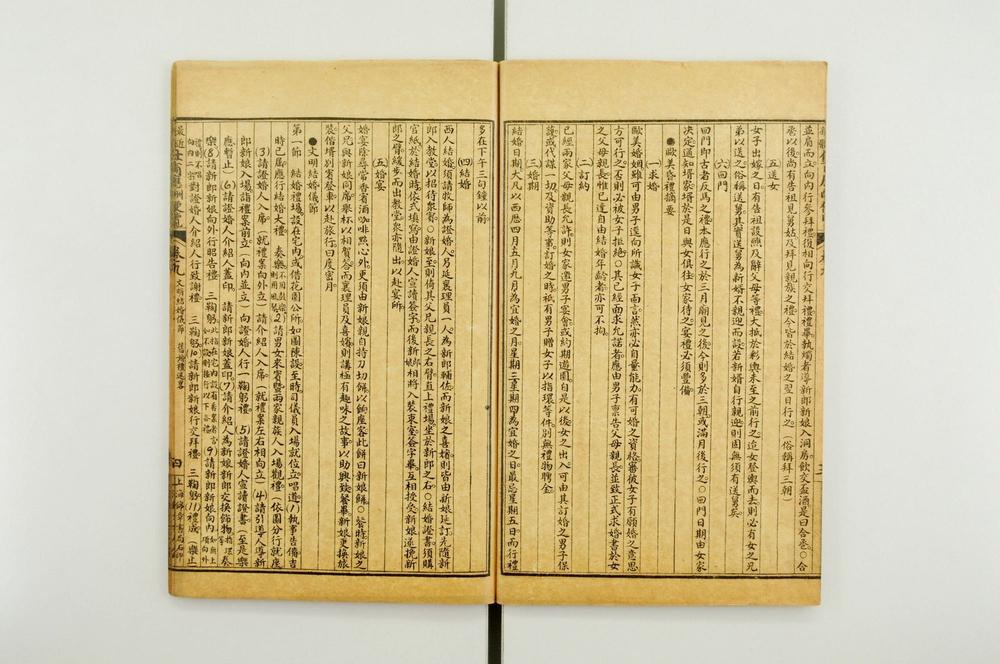 並肩而立向内行參拜禮復相向行交拜禮禮畢執燭者導新郎新娘入洞房飲交盃酒是曰合卺○合
卺以後尚有告祖見舅姑及拜見親族之禮今皆於結婚之翌日行之（俗稱拜三朝）
五送女
女子出嫁之日有告祖設醮及辭父母等禮大抵於彩輿未至之前行之迨女登輿而去則必有女之兄
弟以送之俗稱送舅其實送舅為新婚不親迎而設若新婿自行親迎則固無須有送舅矣
六回門
回門即古者反馬之禮本應行之於三月廟見之後今則多於三朝或滿月後行之○回門日期由女家
決定通知壻家壻於是日與女俱往女家待之宴禮必須豐備
●歐美昏禮摘要
（一）求婚
歐美婚姻雖可由男子逕向所識女子面言然亦必自量能力有可婚之資格審彼女子有願婚之意思
方可行之否則必被女子拒絕○其已經面求允諾者應由男子禀告父母親長並致正式求婚書於女
之父母親長惟已達自由結婚年齡者亦可不拘
（二）訂約
已經兩家父母親長允許則女家邀男子宴會或約期遊園自是以後女之出入可由其訂婚之男子保
護或代謀一切及資助等事訂婚之時祗有男子贈女子以指環等件別無禮物聘金
（三）婚期
結婚日期大凡以西歷四月五月九月為宜婚之月星期三星期四為宜婚之日最忌星期五日而行禮
多在下午三句鐘以前
（四）結婚
西人結婚須請牧師為證婚人另延襄理員一人為新郎輔佐而新娘之喜嬪則皆由新娘延訂先隨新
郎入教堂以招待衆賓○新娘至則倚其父兄親長之右臂直上禮場坐於新郎之右○結婚證書須購
官紙於結婚時依式填寫由證婚人宣讀簽字而後新娘郎相將入裝束室簽字畢互相授受新娘遂挽新
郎之臂緩步而出教堂衆亦隨出以赴宴所
（五）婚宴
婚宴餚等常者酒咖啡點心外更須由新娘親自持刀切餅以餉座客此餅曰新娘餅○餐時新娘之
父兄與新娘同席舉杯以相賀答而襄理員及喜嬪則講極有趣味之故事以助興致餐畢新娘更換旅
裝偕壻別賓登車以赴旅行曰度蜜月
●文明結婚儀節
第一節　結婚禮場設在宅内或借花園公所如圖陳設至時司儀員入場就位立唱道(1)執事告備吉
時已屆應行結婚大禮　奏樂(2)請男女來賓暨兩家親族人入場觀禮（依圖分行就座
(3)請證婚人入席（就禮案向外立）請介紹人入席（就禮案左右相向立）(4)請引導人導新
郎新娘入場詣禮案前立（向内並立）向證婚人行一鞠躬禮(5)請證婚人宣讀證書（至是樂
應暫止）(6)請證婚人介紹人蓋印　請新郎新娘蓋印(7)請介紹人為新娘新郎交換飾物
樂(8)請新郎新娘向外行昭告禮　三鞠躬(9)請新郎新娘向内
對證婚人介紹人行致謝禮　三鞠躬(10)請新郎新娘行交拜禮　三鞠躬(11)禮成（樂止
卷九　文明結婚儀節　舊婚禮述略
四